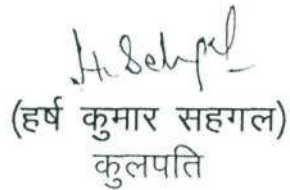 H. Sehgal
(हर्ष कुमार सहगल)
कुलपति